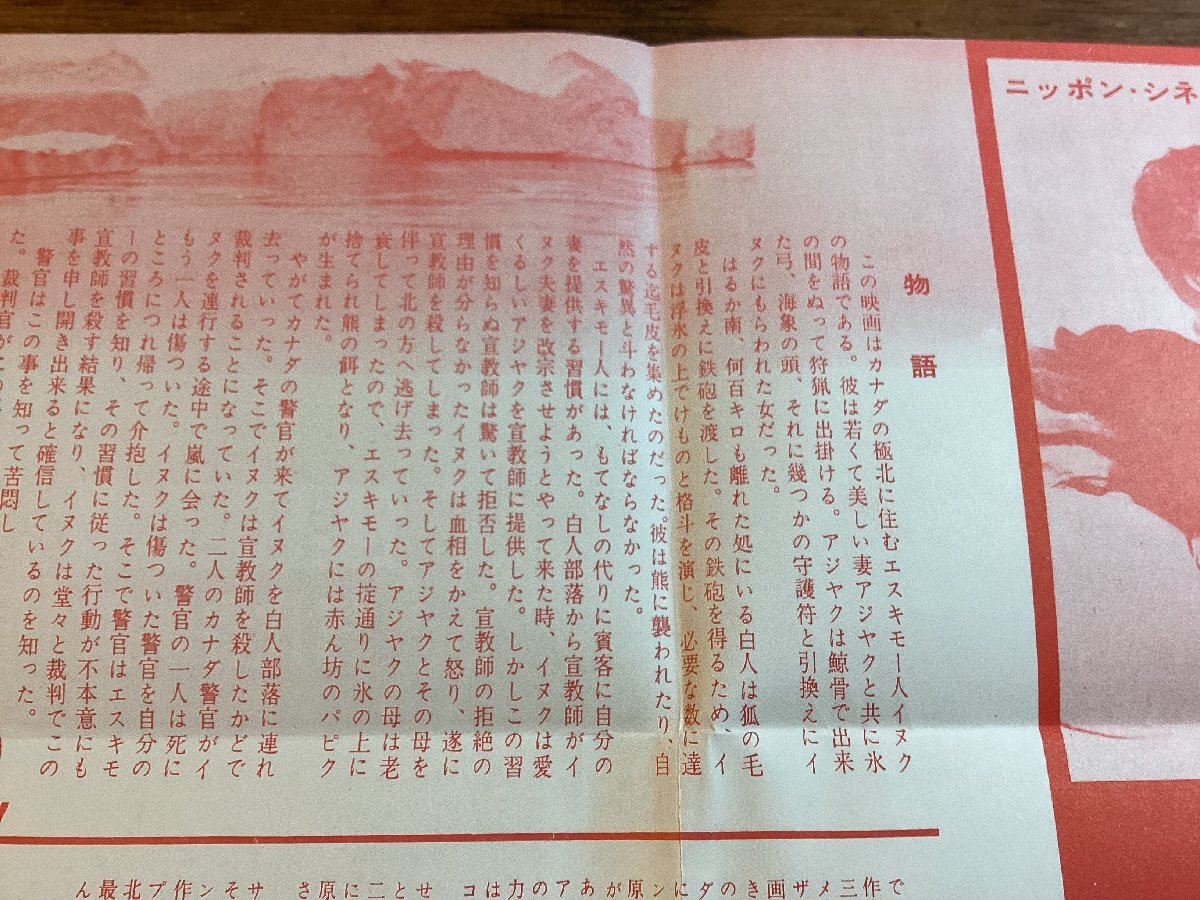 ニッポン・シネ
物語
この映画はカナダの極北に住むエスキモー人イヌク
の物語である。彼は若くて美しい妻アジヤクと共に氷
の間をぬって狩猟に出掛ける。アジヤクは鯨骨で出来
た弓、海象の頭、それに幾つかの守護符と引換えにイ
ヌクにもらわれた女だった。
はるか南、何百キロも離れた処にいる白人は狐の毛
皮と引換えに鉄砲を渡した。その鉄砲を得るため、イ
ヌクは浮氷の上でけものと格斗を演じ、必要な数に達
する迄毛皮を集めたのだった。彼は熊に襲われたり、自
然の驚異と斗わなければならなかった。
エスキモー人には、もてなしの代りに賓客に自分の
妻を提供する習慣があった。白人部落から宣教師がイ
ヌク夫妻を改宗させようとやって来た時、イヌクは愛
くるしいアジヤクを宣教師に提供した。しかしこの習
慣を知らぬ宣教師は驚いて拒否した。宣教師の拒絶の
理由が分らなかったイヌクは血相をかえて怒り、遂に
宣教師を殺してしまった。そしてアジヤクとその母を
伴って北の方へ逃げ去っていった。アジヤクの母は老
衰してしまったので、エスキモーの掟通りに氷の上に
捨てられ熊の餌となり、アジヤクには赤ん坊のパピク
が生まれた。
やがてカナダの警官が来てイヌクを白人部落に連れ
去っていった。そこでイヌクは宣教師を殺したかどで
裁判されることになっていた。二人のカナダ警官がイ
ヌクを連行する途中で嵐に会った。警官の一人は死に
もう一人は傷ついた。イヌクは傷ついた警官を自分の
ところにつれ帰って介抱した。そこで警官はエスキモ
ーの習慣を知り、その習慣に従った行動が不本意にも
宣教師を殺す結果になり、イヌクは堂々と裁判でこの
事を申し開き出来ると確信しているのを知った。
警官はこの事を知って苦悶し
た。裁判官がこの
で
作三
メザ
画き
のダ
にン
原が
あア
の力
はコ
せと
二に
原さ
サそ
ン作
プ北
最ん